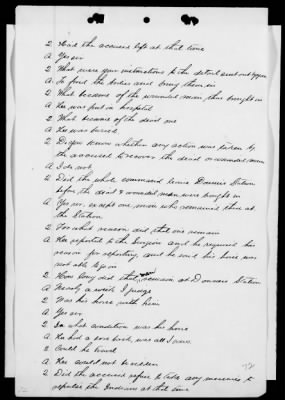 Q Had the accused left at that time
A Yes sir
Q What were your instructions to the detail sent out
A To find the bodies and bring them in
Q What became of the wounded man thus brought in
A He was put in hospital
Q What became of the dead one
A He was buried
Q Do you know whether any action was taken by
the accused to recover the dead or wounded man
A I do not
Q Did the whole command leave Station
before the dead & wounded man were brought in
A Yes sir, except one man who remained there at
the Station
Q For what reason did that one remain
A He reported to the Surgeon and he required his
reason for reporting, and he said his horse was
not able to go on
Q How long did that man remain at Station
A Nearly a week I judge
Q Was his horse with him
A Yes sir
Q In what condition was his horse
A He had a sore back, was all I saw
Q Could he travel
A He could not be ridden
Q Did the accused refuse to take any measures to
repulse the Indians at that time